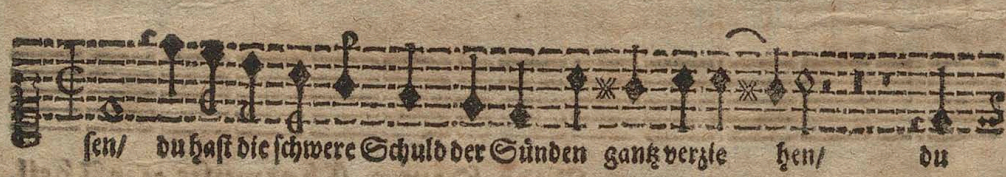 sen/ du hast die schwere Schuld der Sünden gantz verzie hen/ du